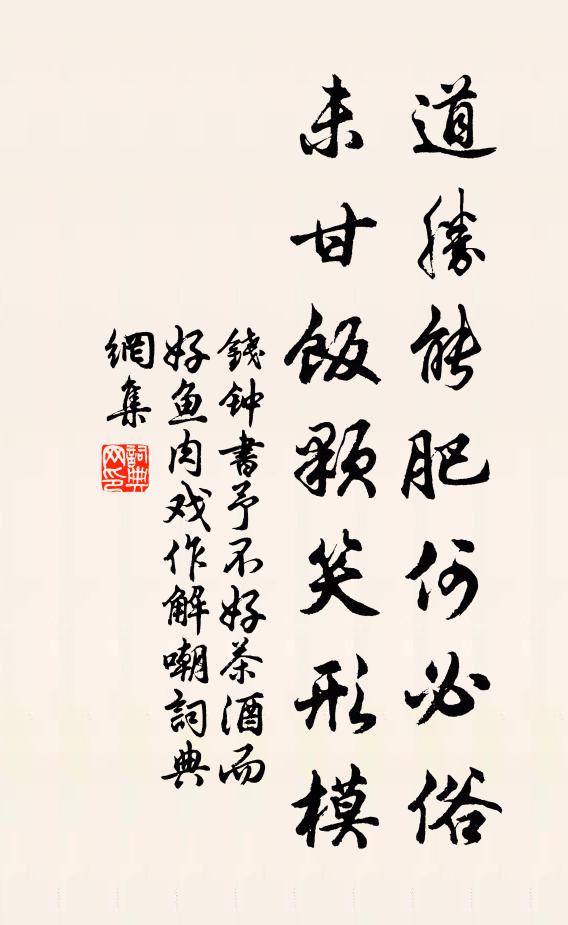 道勝能肥何必俗
未甘飯顆笑形模
錢钟書予不好茶酒而
好鱼肉戏作解嘲詞典
網集
詞典网印